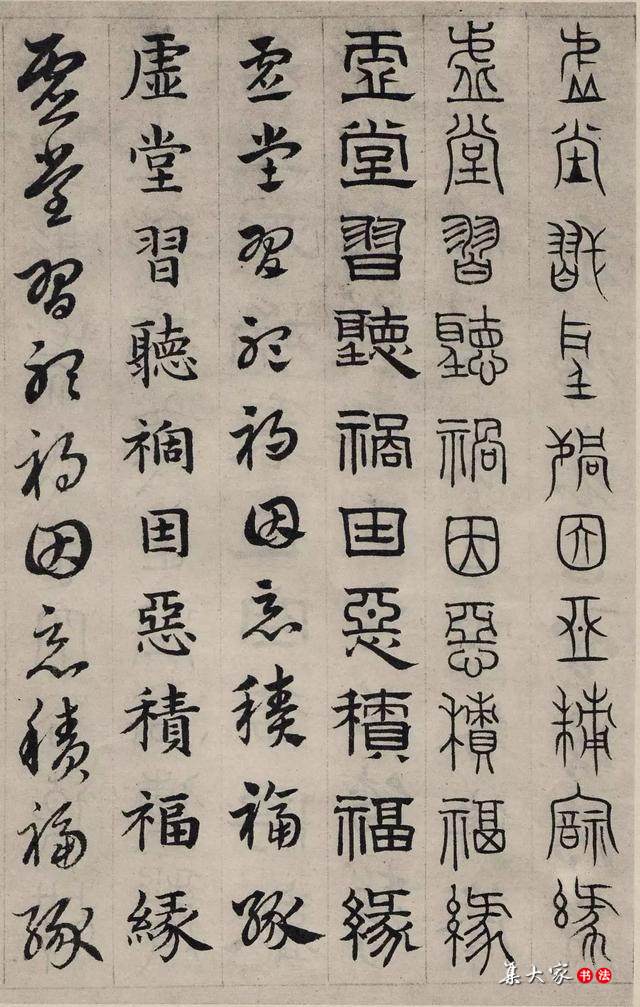 虛堂習聽禍因惡積福緣
虛堂習聽禍因惡積福緣
虛堂習聽禍因惡積福緣
虛堂習聽禍因惡積福緣
虛堂習聽禍因惡積福緣
虛堂習聽禍因惡積福緣
集大家书法